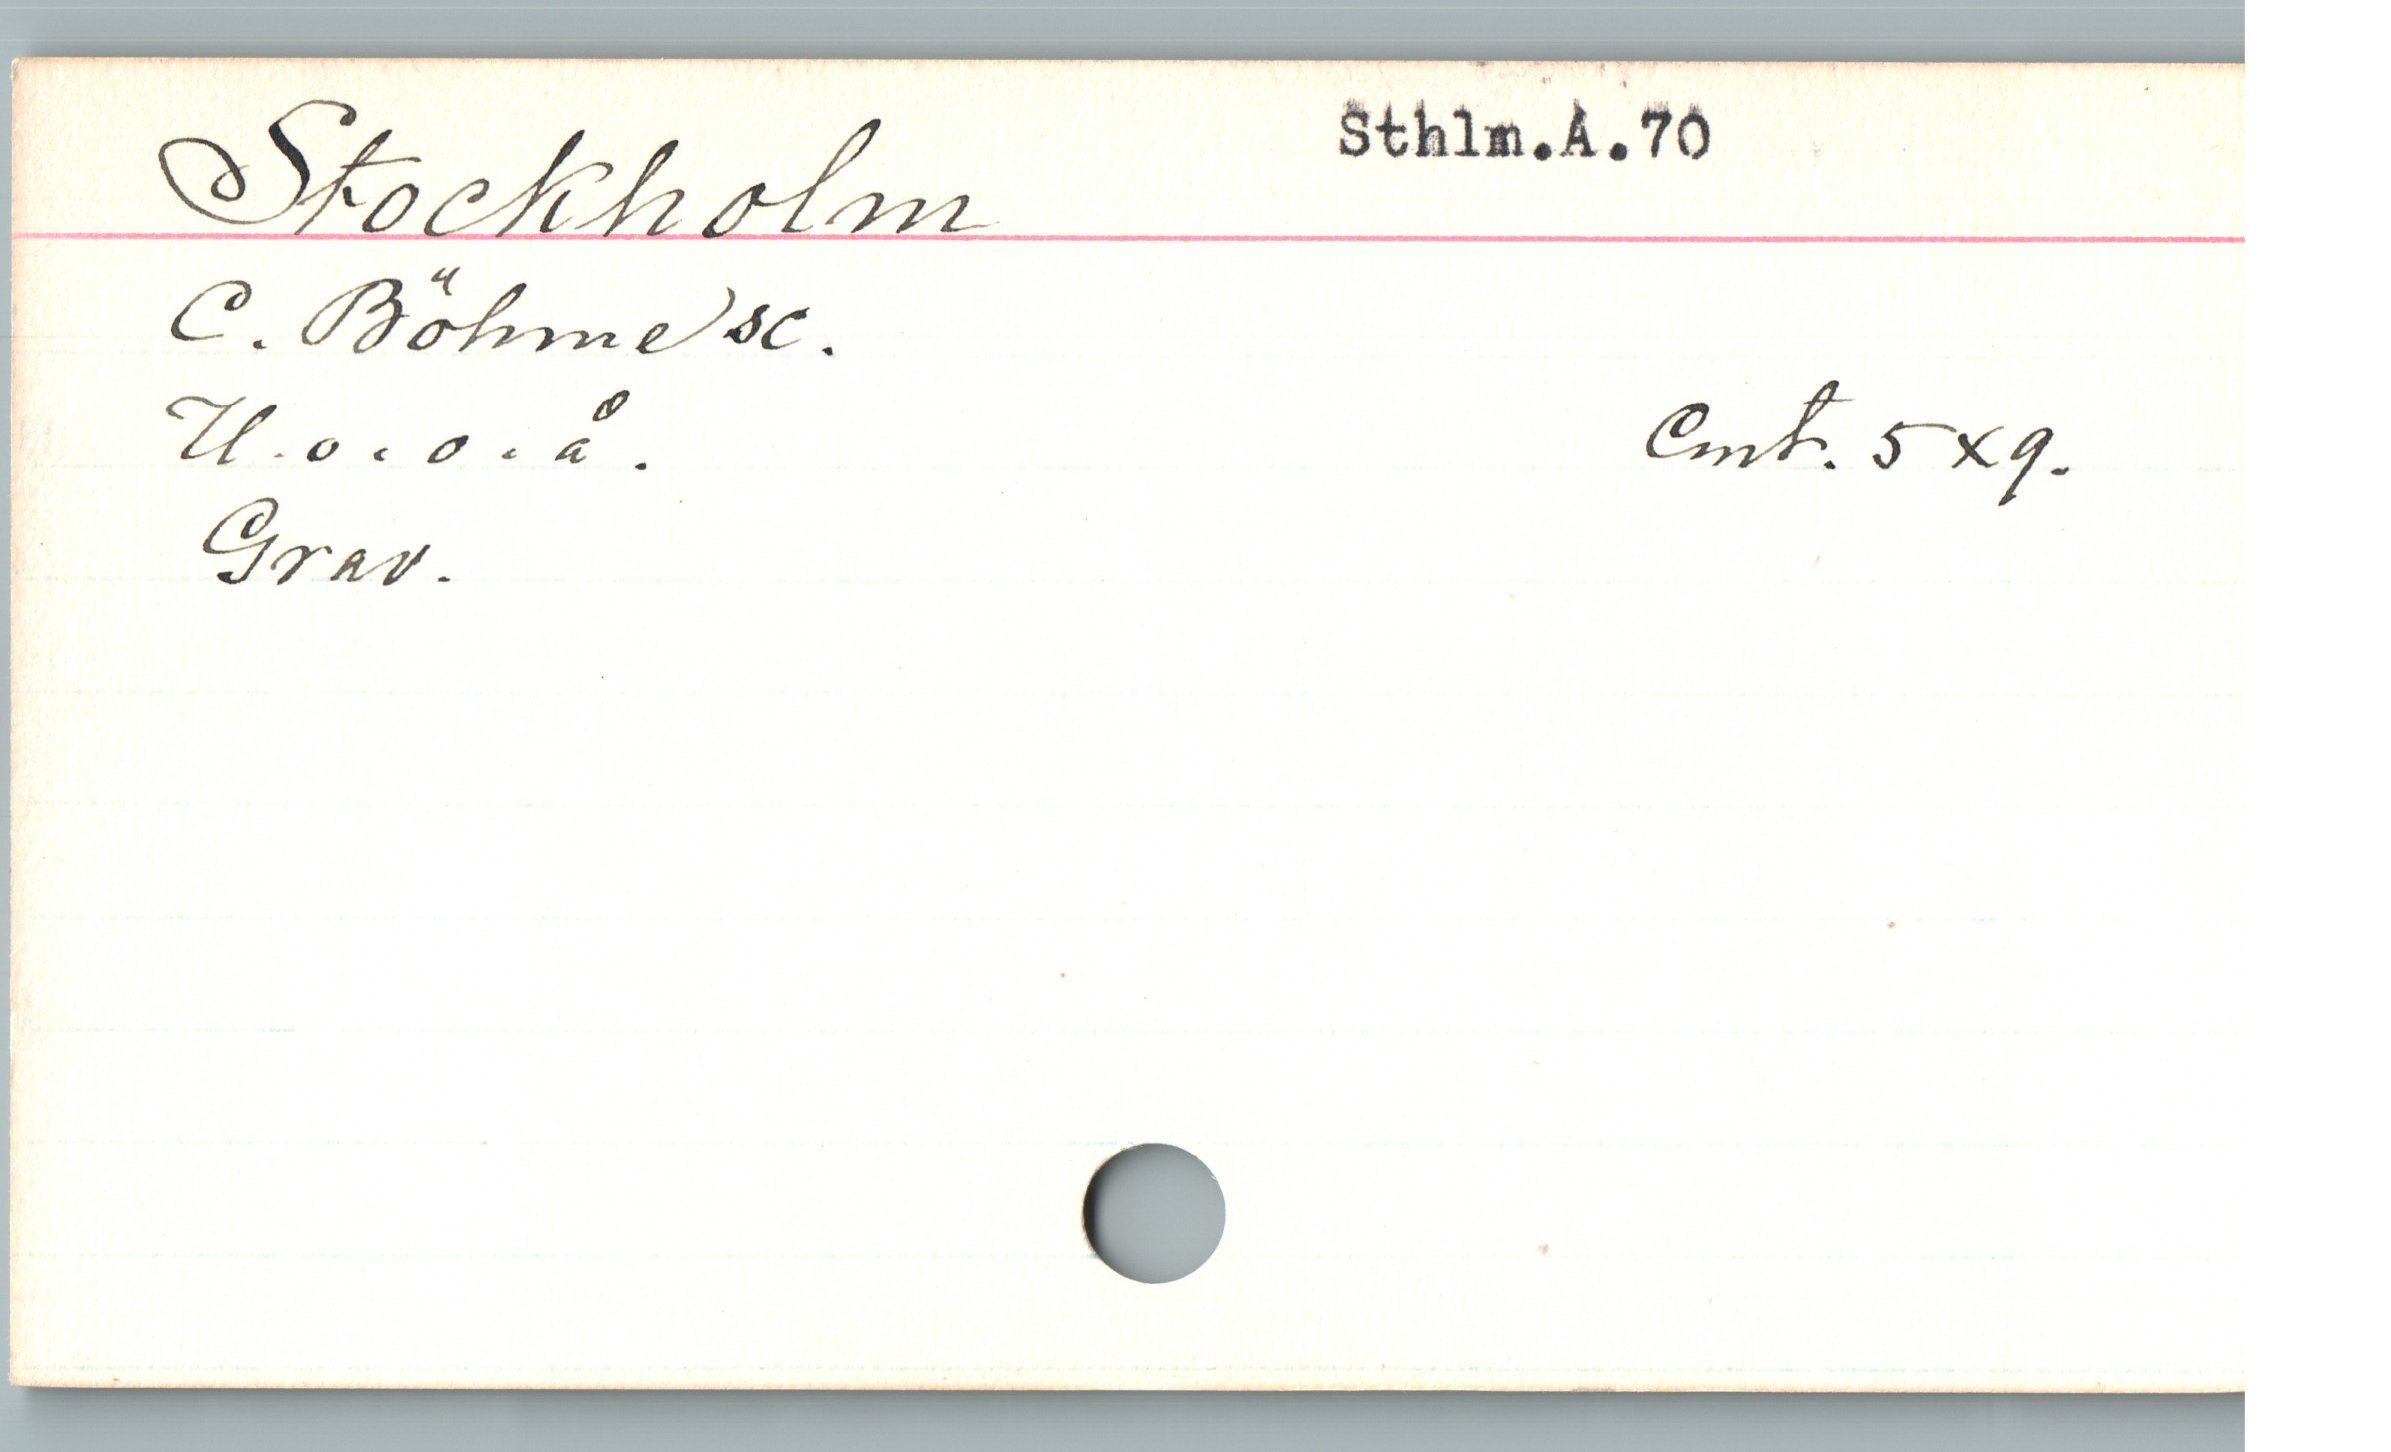 Stockholm Sthlm.A.70
C. Böhme sc.
U.o.o.å. Cmt. 5x9.
Grav.